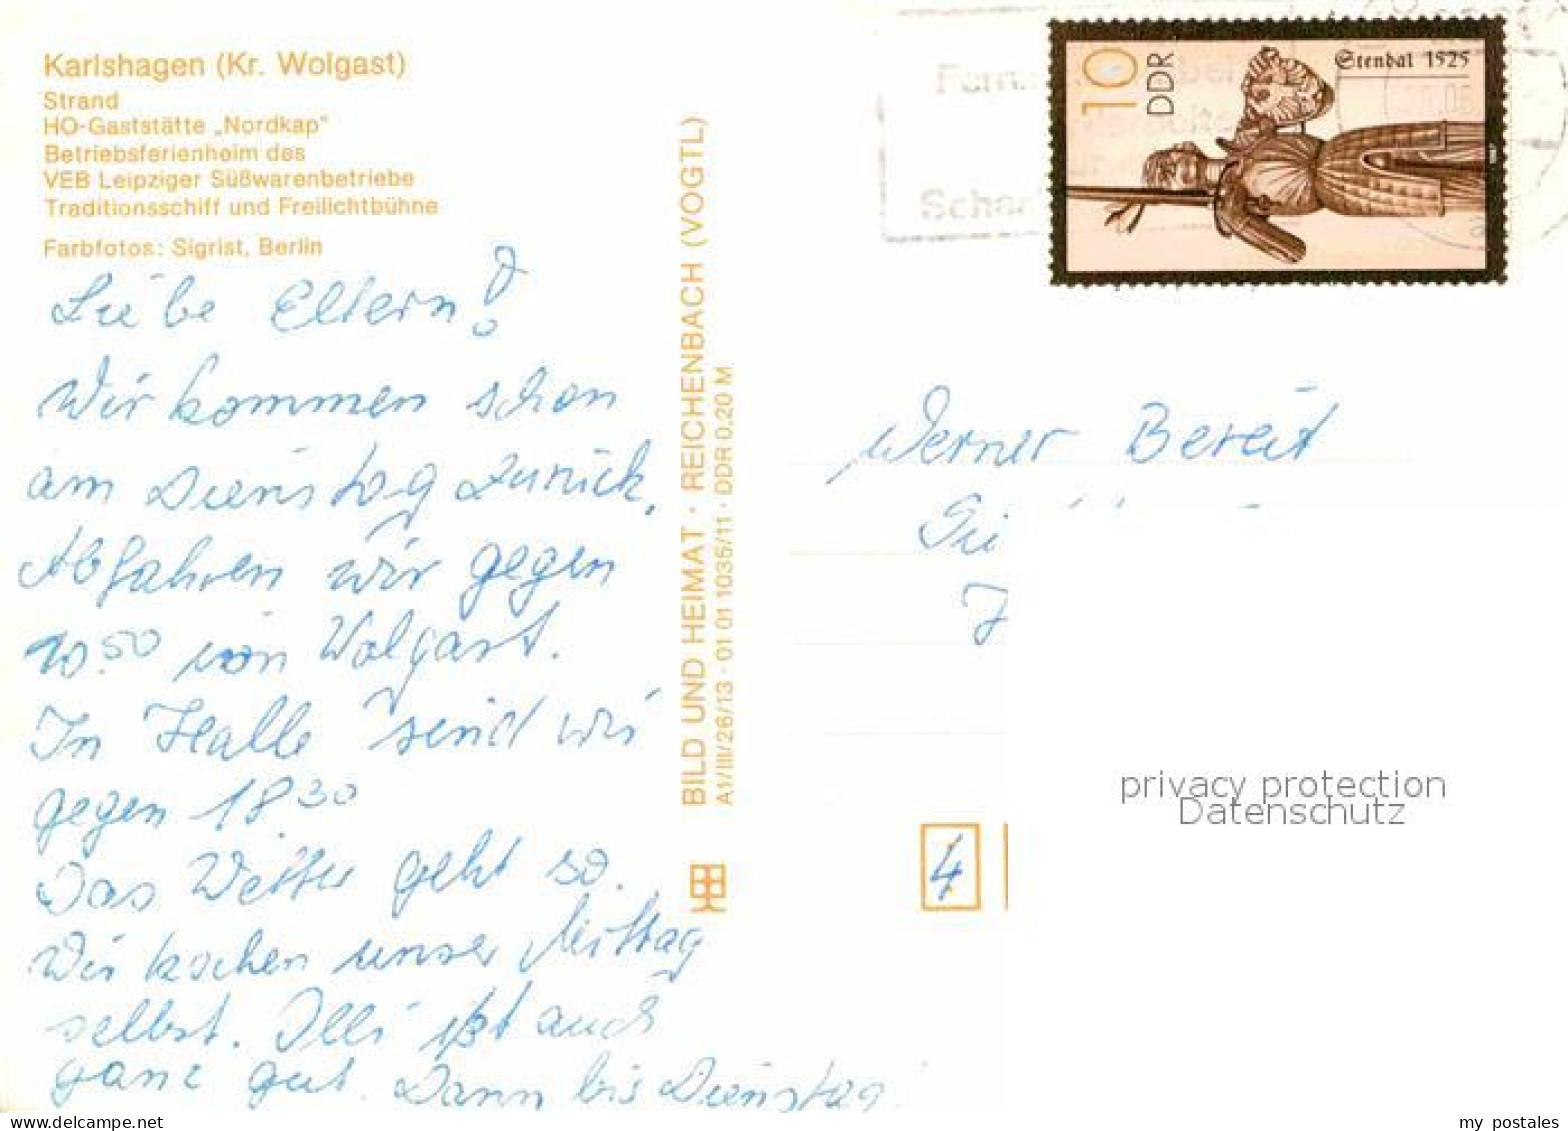 Karlshagen (Kr. Wolgast)
Strand
HO-Gaststätte „Nordkap"
Betriebsferienheim des
VEB Leipziger Süßwarenbetriebe
Traditionsschiff und Freilichtbühne
Farbfotos: Sigrist, Berlin
Liebe Eltern!
Wir kommen schon
am Dienstag zurück.
Abfahren wir gegen
10.50 von Wolgast.
In Halle sind wir
gegen 18 30
Das Wetter geht so.
Wir kochen unser Mittag
selbst. Illi ißt auch
ganz gut. Dann bis Dienstag
BILD UND HEIMAT · REICHENBACH (VOGTL)
A1/III/26/13 · 01 01 1035/11 · DDR 0,20 M
10
DDR
Stendal 1525
Werner
4
privacy protection
Datenschutz
my postales